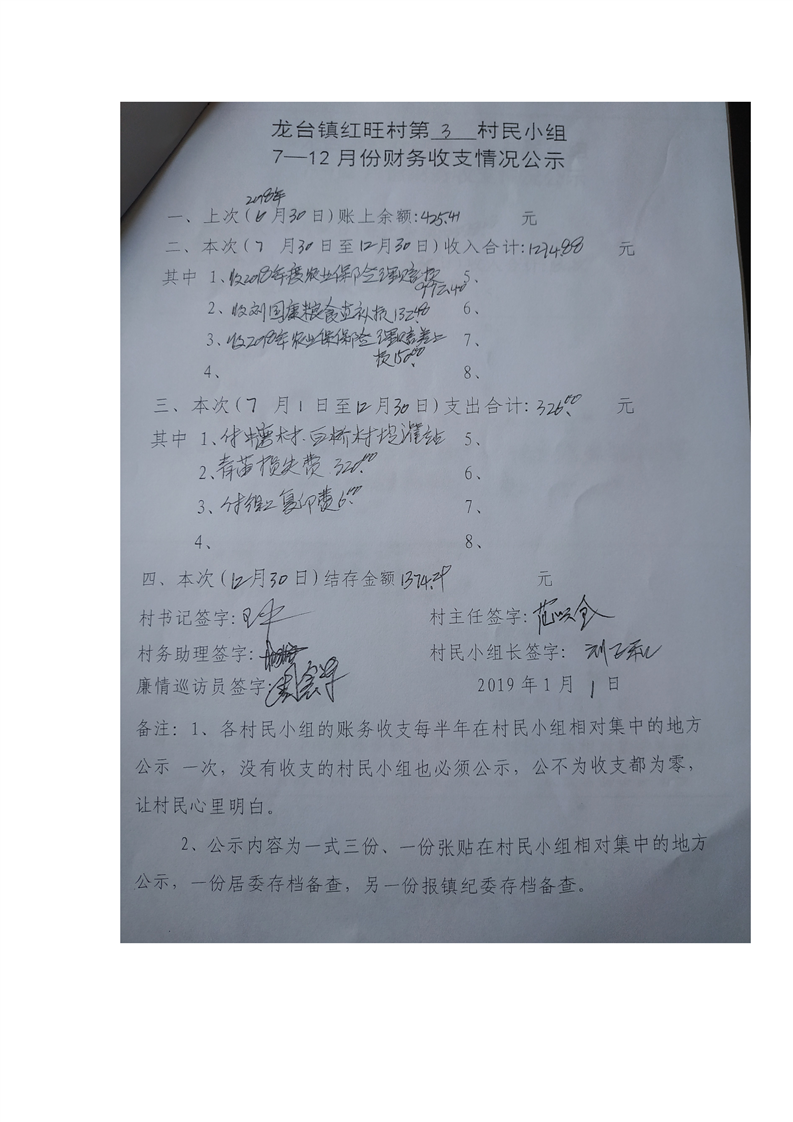 龙台镇红旺村第 3 村民小组
7—12月份财务收支情况公示
2018年
一、上次(6月30日)账上余额:425.41 元
二、本次(7 月30日至12月30日)收入合计:1274.88 元
其中 1、收2018年度农业保险理赔款 5、
992.40
2、收刘国康粮食直补款132.48 6、
3、收2018年农业保险理赔差上 7、
款150.00
4、 8、
三、本次(7 月1日至12月30日)支出合计:326.00 元
其中 1、付塘村.白桥村提灌站 5、
2、青苗损失费 320.00 6、
3、付组上复印费6.00 7、
4、 8、
四、本次(12月30日)结存金额1374.29 元
村书记签字: 村主任签字:
村务助理签字: 村民小组长签字:
廉情巡访员签字: 2019年1月 1日
备注: 1、各村民小组的账务收支每半年在村民小组相对集中的地方
公示 一次，没有收支的村民小组也必须公示，公不为收支都为零，
让村民心里明白。
2、公示内容为一式三份、一份张贴在村民小组相对集中的地方
公示，一份居委存档备查，另一份报镇纪委存档备查。